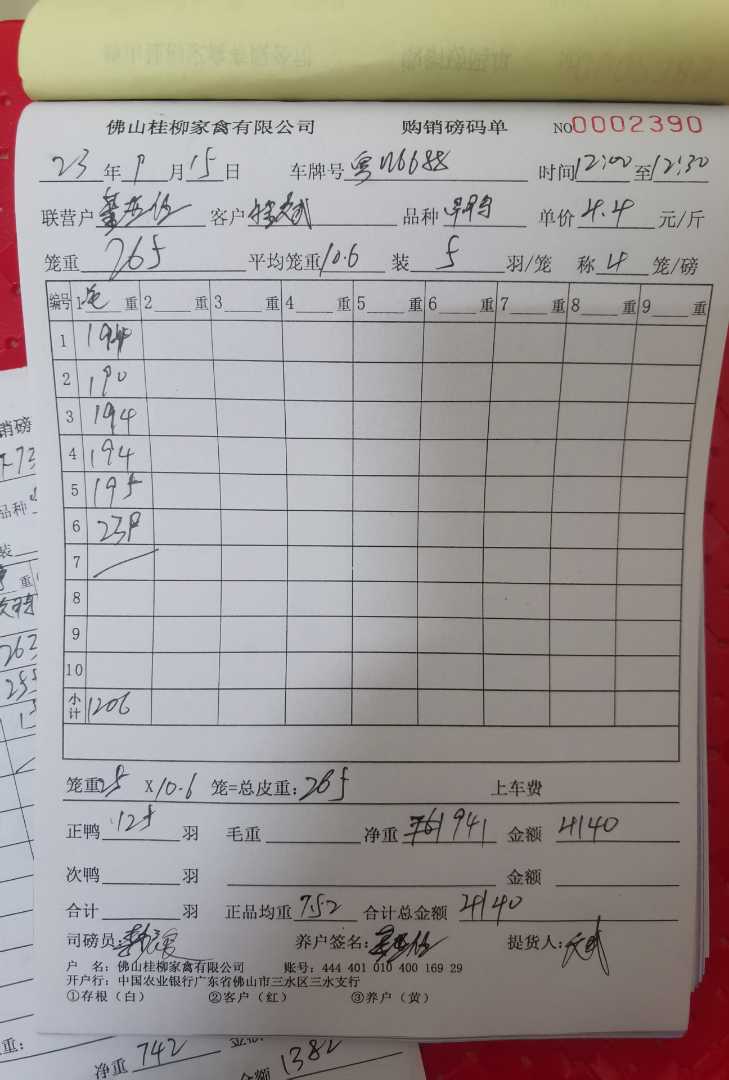 佛山桂柳家禽有限公司 购销磅码单 NO0002390
23年9月15日 车牌号粤N6688 时间12:00至12:30
联营户 客户 品种 单价4.4元/斤
笼重265 平均笼重10.6 装5羽/笼 称4笼/磅
编号 1毛重 2重 3重 4重 5重 6重 7重 8重 9重
1 194
2 190
3 194
4 194
5 195
6 239
7
8
9
10
小计 1206
笼重25 X10.6 笼=总皮重:265 上车费
正鸭125羽 毛重 净重941 金额4140
次鸭 羽 金额
合计 羽 正品均重7.52 合计总金额4140
司磅员: 养户签名: 提货人:
户 名:佛山桂柳家禽有限公司 账号:444 401 010 400 169 29
开户行:中国农业银行广东省佛山市三水区三水支行
①存根(白) ②客户(红) ③养户(黄)
销磅
品种
装
重
263
重:
净重742 金额1382